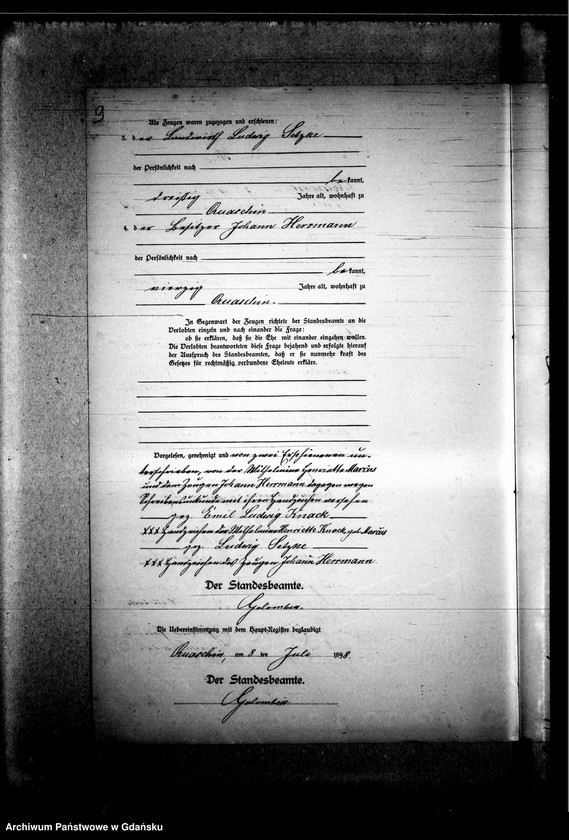 9
Als Zeugen waren zugezogen und erschienen:
3. der Landwirth Ludwig Setzke
der Persönlichkeit nach
bekannt,
dreißig Jahre alt, wohnhaft zu
Quaschin
4. der Besitzer Johann Herrmann
der Persönlichkeit nach
bekannt,
vierzig Jahre alt, wohnhaft zu
Quaschin.
In Gegenwart der Zeugen richtete der Standesbeamte an die
Verlobten einzeln und nach einander die Frage:
ob sie erklären, daß sie die Ehe mit einander eingehen wollen.
Die Verlobten beantworteten diese Frage bejahend und erfolgte hierauf
der Ausspruch des Standesbeamten, daß er sie nunmehr kraft des
Gesetzes für rechtmäßig verbundene Eheleute erkläre.
Vorgelesen, genehmigt und von zwei Erschienenen un-
terschrieben, von der Wilhelmine Henriette Marius
und dem Zeugen Johann Herrmann dagegen wegen
Schreibensunkunde mit ihren Handzeichen versehen
gez. Emil Ludwig Knack
XXX Handzeichen der Wilhelmine Henriette Knack geb. Marius
gez. Ludwig Setzke
XXX Handzeichen des Zeugen Johann Herrmann
Der Standesbeamte.
Golombek.
Die Uebereinstimmung mit dem Haupt-Register beglaubigt
Quaschin, am 8 ten Juli 1898.
Der Standesbeamte.
Golombek
Archiwum Państwowe w Gdańsku